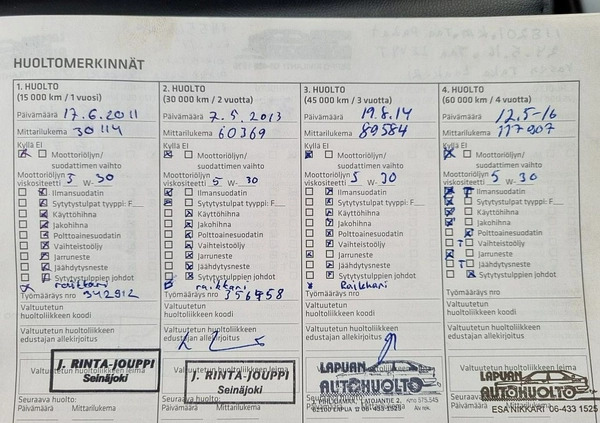 HUOLTOMERKINNÄT
1. HUOLTO
(15 000 km / 1 vuosi)
Päivämäärä 17.6.2011
Mittarilukema 30114
Kyllä Ei
Moottoriöljyn/
suodattimen vaihto
Moottoriöljyn
viskositeetti 5 W- 30
Ilmansuodatin
Sytytystulpat tyyppi: F
Käyttöhihna
Jakohihna
Polttoainesuodatin
Vaihteistoöljy
Jarruneste
Jäähdytysneste
Sytytystulppien johdot
raikkari
Työmääräys nro 342912
Valtuutetun
huoltoliikkeen koodi
Valtuutetun huoltoliikkeen
edustajan allekirjoitus
Valtuutetun huoltoliikkeen leima
J. RINTA-JOUPPI
Seinäjoki
Seuraava huolto:
Päivämäärä Mittarilukema
2. HUOLTO
(30 000 km / 2 vuotta)
Päivämäärä 7.5.2013
Mittarilukema 60369
Kyllä Ei
Moottoriöljyn/
suodattimen vaihto
Moottoriöljyn
viskositeetti 5 W- 30
Ilmansuodatin
Sytytystulpat tyyppi: F
Käyttöhihna
Jakohihna
Polttoainesuodatin
Vaihteistoöljy
Jarruneste
Jäähdytysneste
Sytytystulppien johdot
raikkari
Työmääräys nro 356958
Valtuutetun
huoltoliikkeen koodi
Valtuutetun huoltoliikkeen
edustajan allekirjoitus
Valtuutetun huoltoliikkeen leima
J. RINTA-JOUPPI
Seinäjoki
Seuraava huolto:
Päivämäärä Mittarilukema
3. HUOLTO
(45 000 km / 3 vuotta)
Päivämäärä 19.8.14
Mittarilukema 89584
Kyllä Ei
Moottoriöljyn/
suodattimen vaihto
Moottoriöljyn
viskositeetti 5 W- 30
Ilmansuodatin
Sytytystulpat tyyppi: F
Käyttöhihna
Jakohihna
Polttoainesuodatin
Vaihteistoöljy
Jarruneste
Jäähdytysneste
Sytytystulppien johdot
Raikkari
Työmääräys nro
Valtuutetun
huoltoliikkeen koodi
Valtuutetun huoltoliikkeen
edustajan allekirjoitus
LAPUAN
AUTOHUOLTO
62100 LAPUA
4. HUOLTO
(60 000 km / 4 vuotta)
Päivämäärä 12.5-16
Mittarilukema 117907
Kyllä Ei
Moottoriöljyn/
suodattimen vaihto
Moottoriöljyn
viskositeetti 5 W- 30
Ilmansuodatin
Sytytystulpat tyyppi: F
Käyttöhihna
Jakohihna
Polttoainesuodatin
Vaihteistoöljy
Jarruneste
Jäähdytysneste
Sytytystulppien johdot
Työmääräys nro
Valtuutetun
huoltoliikkeen koodi
Valtuutetun huoltoliikkeen
edustajan allekirjoitus
LAPUAN
AUTOHUOLTO
ESA NIKKARI 06-433 1525
Päivämäärä